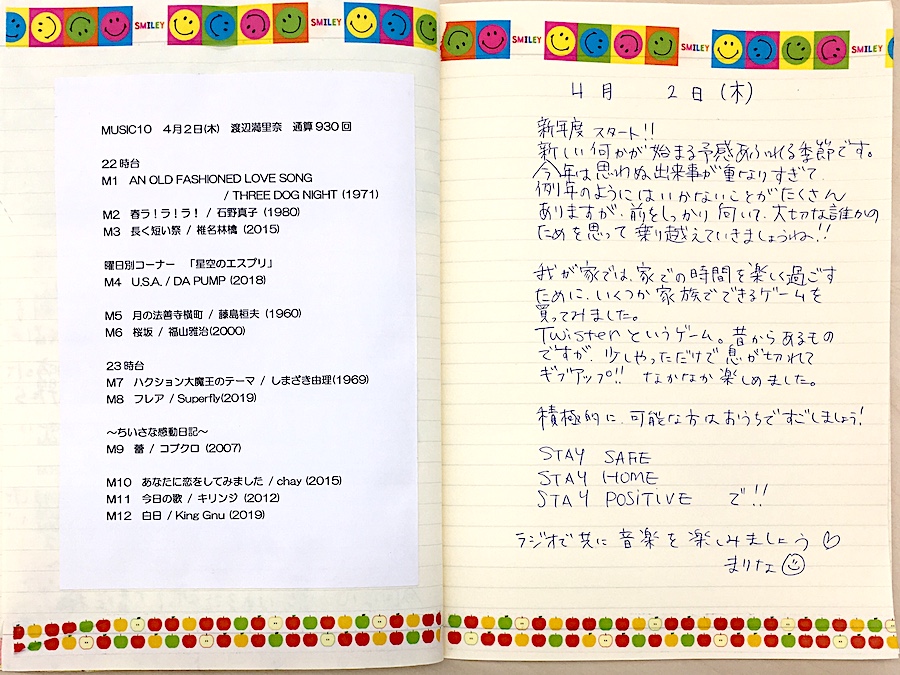 SMILEY
SMILEY
MUSIC10 4月2日(木) 渡辺満里奈 通算930回
22時台
M1 AN OLD FASHIONED LOVE SONG
/ THREE DOG NIGHT (1971)
M2 春ラ!ラ!ラ! / 石野真子 (1980)
M3 長く短い祭 / 椎名林檎 (2015)
曜日別コーナー 「星空のエスプリ」
M4 U.S.A. / DA PUMP (2018)
M5 月の法善寺横町 / 藤島桓夫 (1960)
M6 桜坂 / 福山雅治(2000)
23時台
M7 ハクション大魔王のテーマ / しまざき由理(1969)
M8 フレア / Superfly(2019)
~ちいさな感動日記~
M9 蕾 / コブクロ (2007)
M10 あなたに恋をしてみました / chay (2015)
M11 今日の歌 / キリンジ (2012)
M12 白日 / King Gnu (2019)
SMILEY
SMILEY
SMILEY
4月 2日(木)
新年度 スタート!!
新しい何かが始まる予感あふれる季節です。
今年は思わぬ出来事が重なりすぎて、
例年のようにはいかないことがたくさん
ありますが、前をしっかり向いて、大切な誰かの
ためを思って乗り越えていきましょうね!!
我が家では、家での時間を楽しく過ごす
ために、いくつか家族でできるゲームを
買ってみました。
Twisterというゲーム。昔からあるもの
ですが、少しやっただけで息が切れて
ギブアップ!! なかなか楽しめました。
積極的に、可能な方はおうちですごしましょう!
STAY SAFE
STAY HOME
STAY POSITIVE で!!
ラジオで共に音楽を楽しみましょう♡
まりな☺